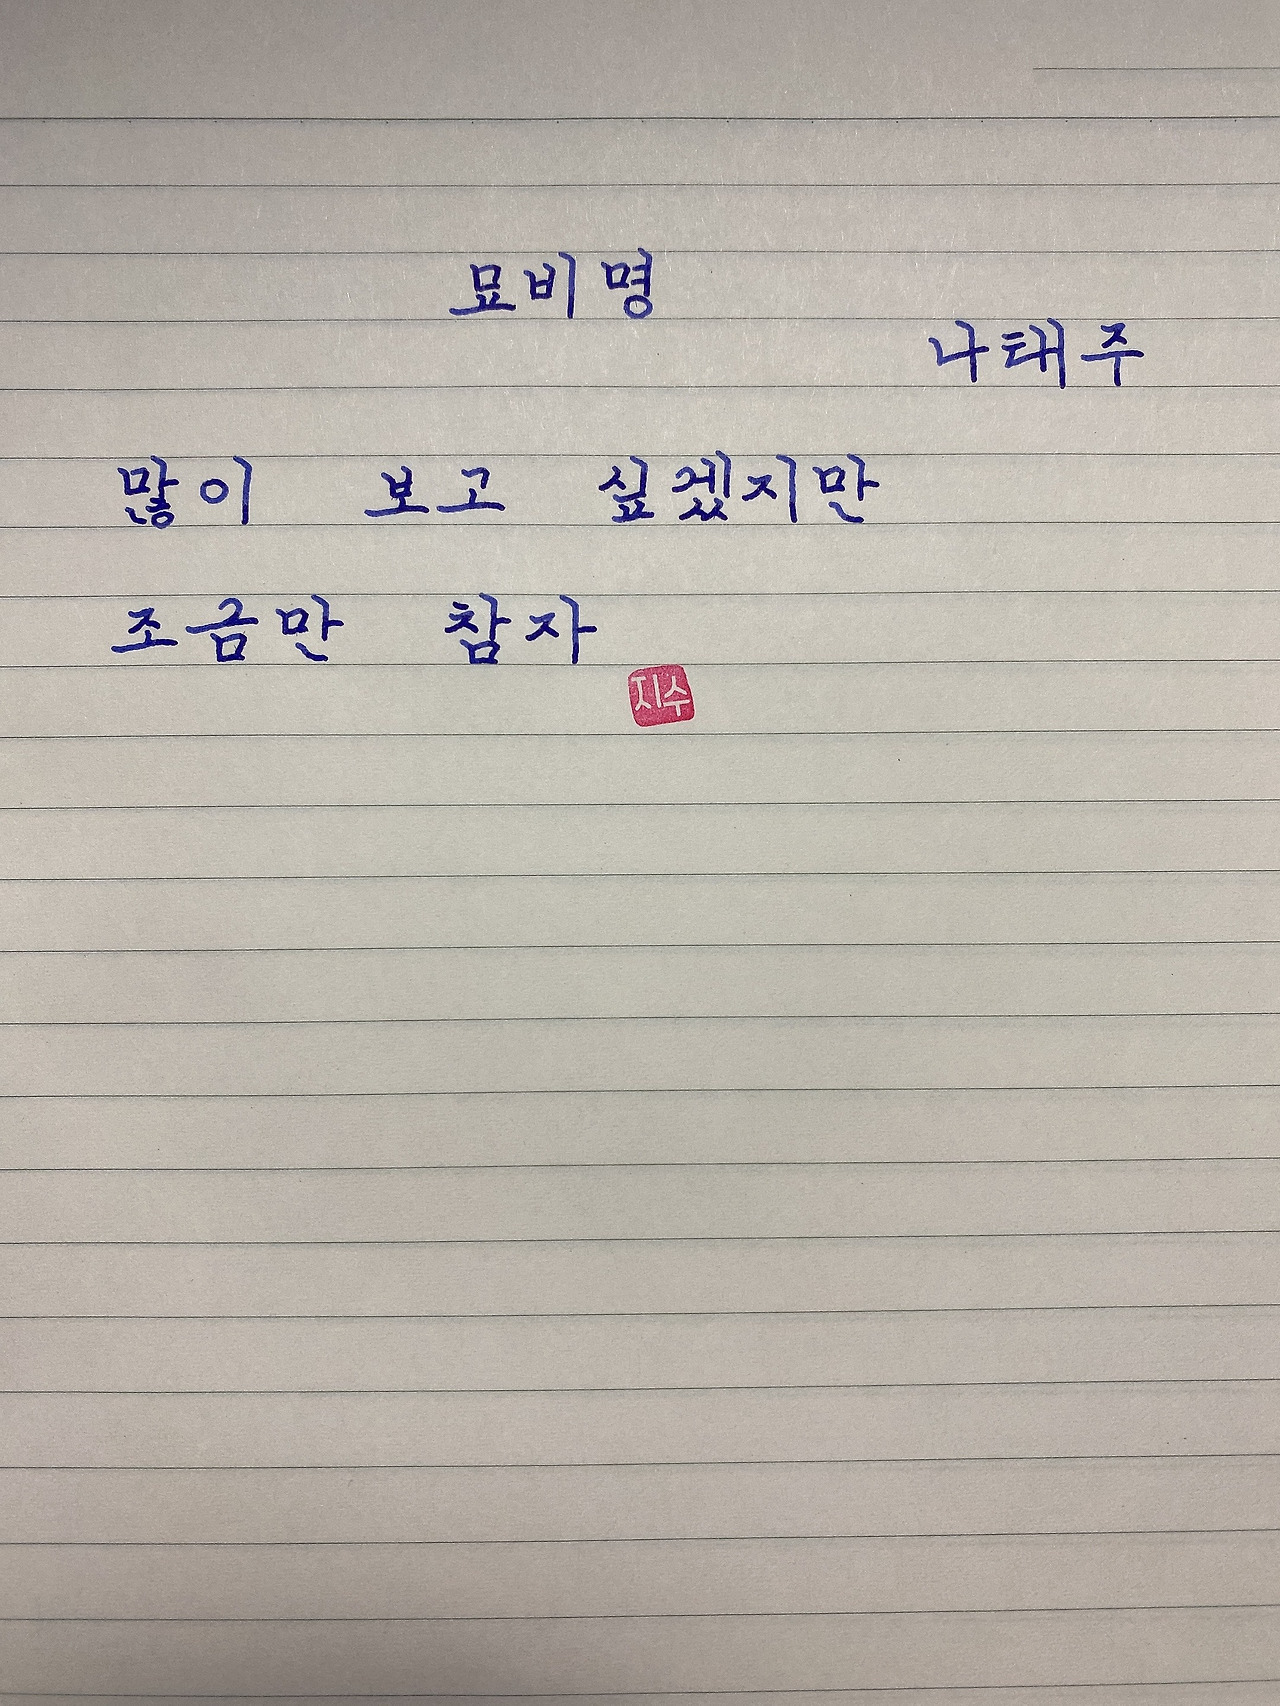 묘비명
나태주
많이 보고 싶겠지만
조금만 참자
지수